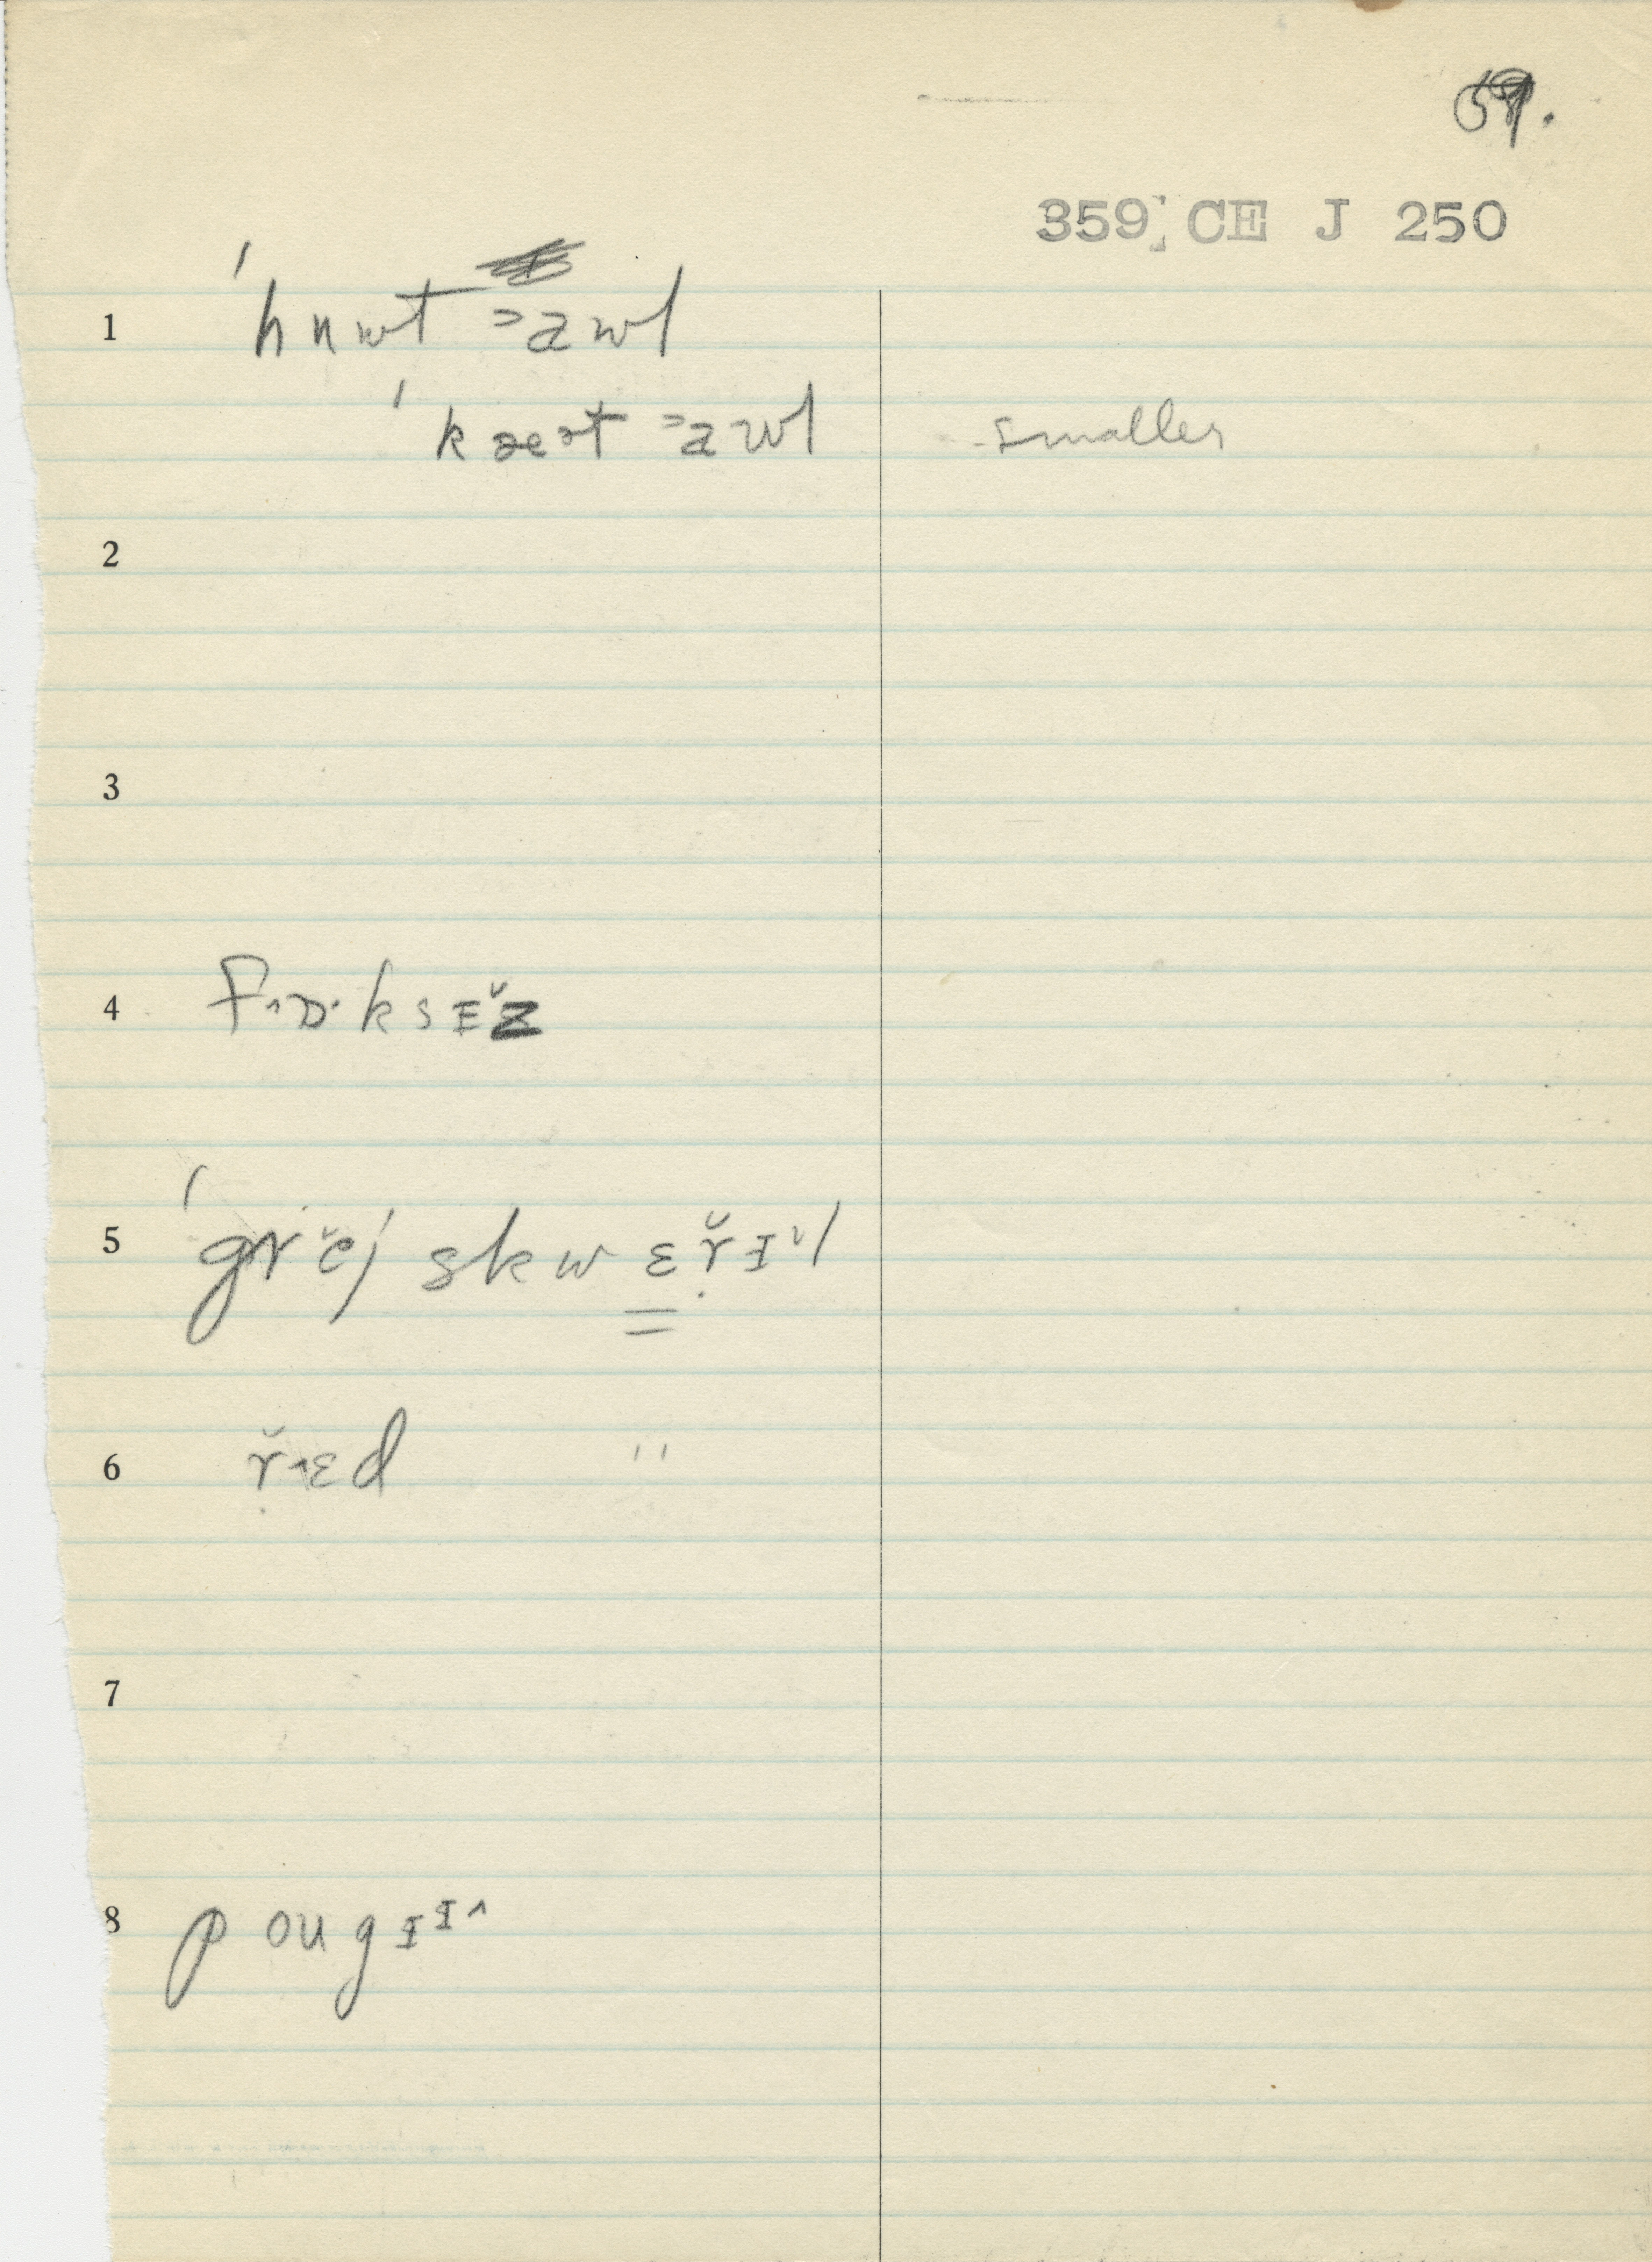 59.
359 CE J 250
1 ˈhuwt ᵊawl
ˈkæət ᵊawl smaller
2
3
4 fɒksɪ̌z
5 ˈgrěj skwɛṛ̌ɪl
6 ṛ̌ɛd "
7
8 pougɪɪ^